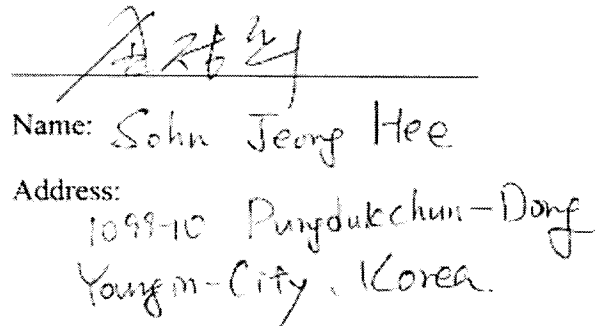 손정희
Name: Sohn Jeong Hee
Address:
1099-10 Pungdukchun-Dong
Youngin-City, Korea.